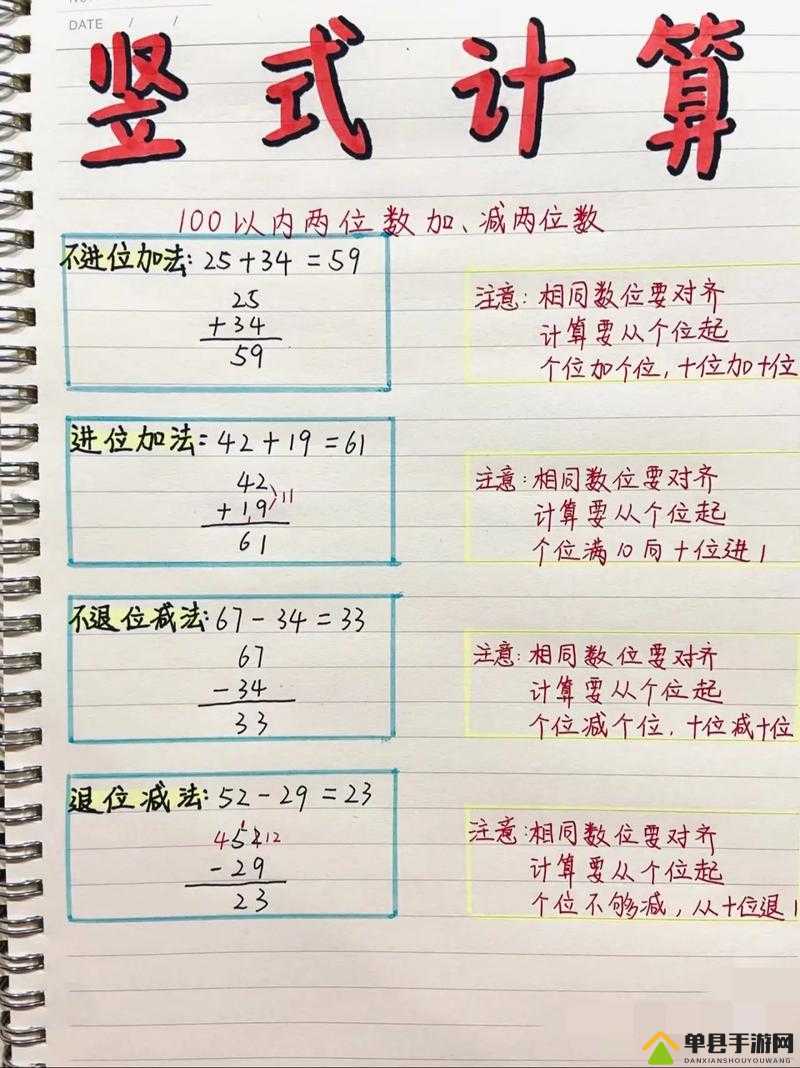 DATE / /
竖式计算
100以内两位数加、减两位数
不进位加法:25+34=59
25
+34
59
注意:相同数位要对齐
计算要从个位起
个位加个位,十位加十位
进位加法:42+19=61
42
+19
11
1
61
注意:相同数位要对齐
计算要从个位起
个位满10向十位进1
不退位减法:67-34=33
67
-34
33
注意:相同数位要对齐
计算要从个位起
个位减个位,十位减十位
退位减法:52-29=23
4 52 12
-29
23
注意:相同数位要对齐
计算要从个位起
个位不够减,从十位退1
单县手游网
DANXIANSHOUYOUWANG